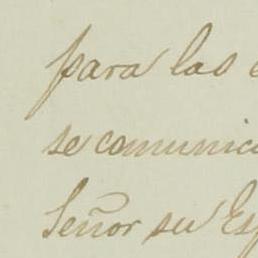 para las
se comunic
Señor su Esp